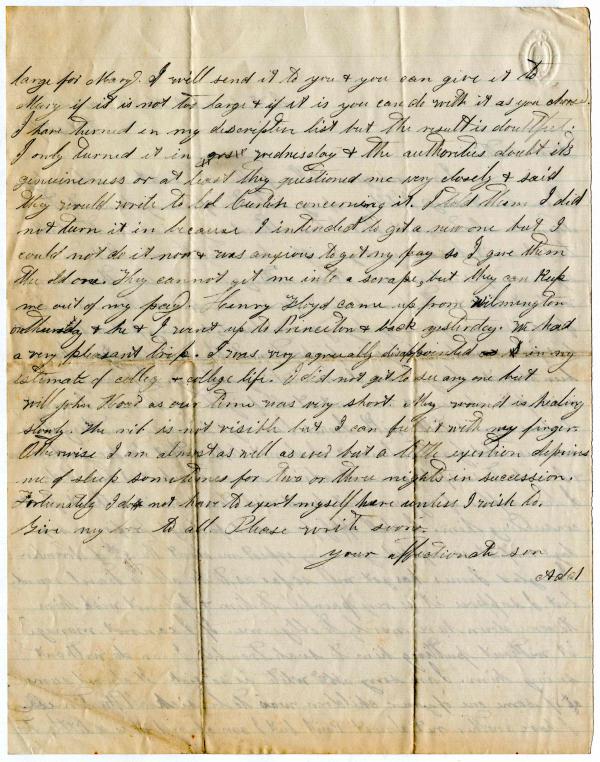 large for Mary. I will send it to you & you can give it to
Mary if it is not too large & if it is you can do with it as you choose.
I have turned in my discription list but the result is doubtful.
I only turned it in wednesday & the authorities doubt its
genuineness or at least they questioned me very closely & said
they would write to Col concerning it. I told them I did
not turn it in because I intended to get a new one but I
could not do it now & was anxious to get my pay so I gave them
the old one. They cannot get me into a scrape, but they can keep
me out of my pay. Henry Floyd came up from Wilmington
on Thursday & he & I went up to Princeton & back yesterday. We had
a very pleasant trip. I was very agreeably disappointed in my
estimate of colleg & college life. I did not get to see any one but
Will John as our time was very short. My wound is healing
slowly. The rib is not visible but I can feel it with my finger.
Otherwise I am almost as well as ever but a little exertion deprives
me of sleep sometimes for two or three nights in succession.
Fortunately I do not have to exert myself here unless I wish to.
Give my love to all Please write soon.
your affectionate son